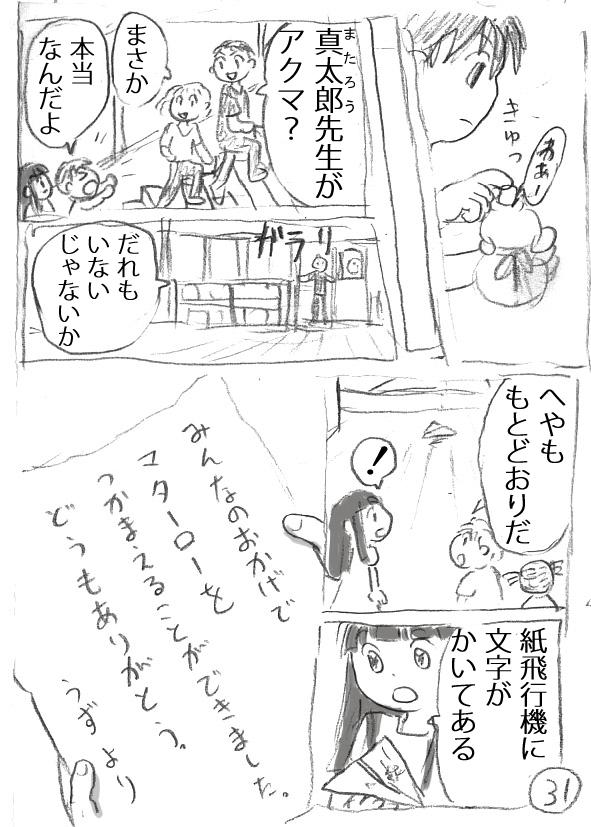 きゅっ
わあー
真太郎先生が
またろう
アクマ？
まさか
本当
なんだよ
ガラリ
だれも
いない
じゃないか
へやも
もとどおりだ
！
紙飛行機に
文字が
かいてある
みんなのおかげで
マターローを
つかまえることができました。
どうもありがとう。
うずより
31